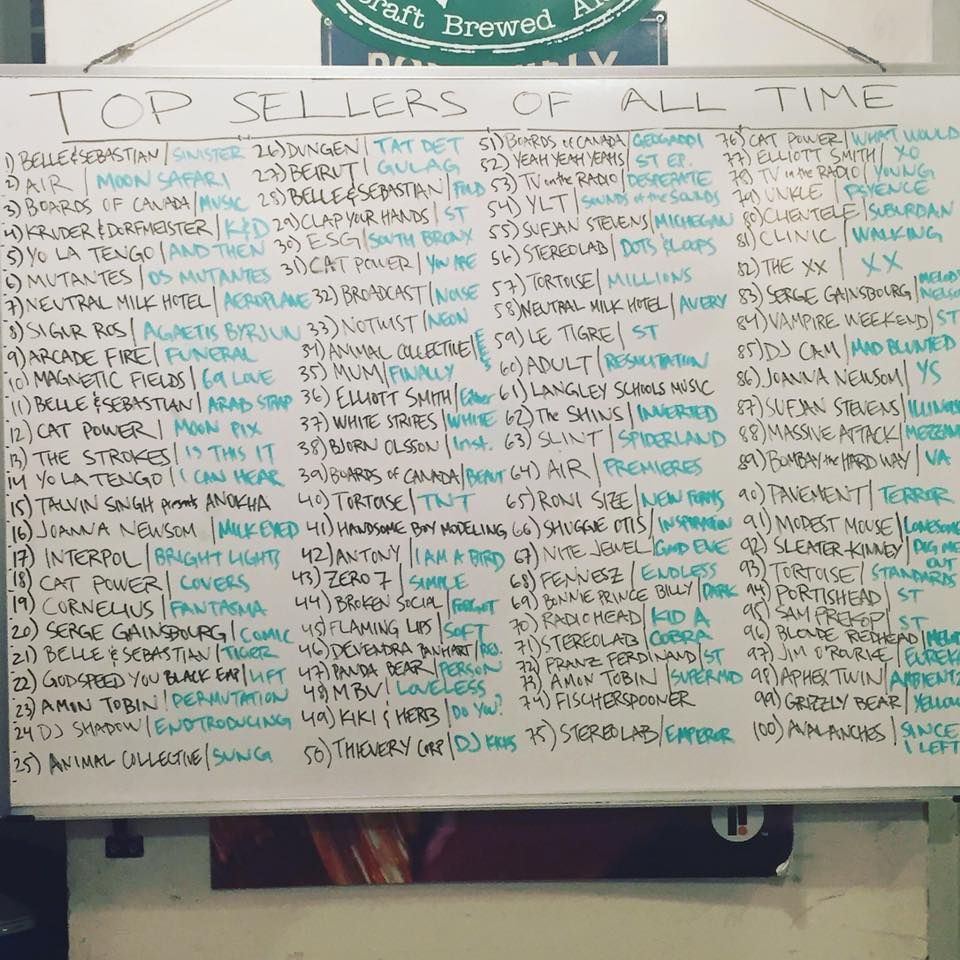 Craft Brewed Al
TOP SELLERS OF ALL TIME
1) BELLE & SEBASTIAN / SINISTER
2) AIR / MOON SAFARI
3) BOARDS OF CANADA / MUSIC
4) KRUDER & DORFMEISTER / K&D
5) YO LA TENGO / AND THEN
6) MUTANTES / OS MUTANTES
7) NEUTRAL MILK HOTEL / AEROPLANE
8) SIGUR ROS / AGAETIS BYRJUN
9) ARCADE FIRE / FUNERAL
10) MAGNETIC FIELDS / 69 LOVE
11) BELLE & SEBASTIAN / ARAB STRAP
12) CAT POWER / MOON PIX
13) THE STROKES / IS THIS IT
14 YO LA TENGO / I CAN HEAR
15) TALVIN SINGH presents ANOKHA
16) JOANNA NEWSOM / MILK EYED
17) INTERPOL / BRIGHT LIGHTS
18) CAT POWER / COVERS
19) CORNELIUS / FANTASMA
20) SERGE GAINSBOURG / COMIC
21) BELLE & SEBASTIAN / TIGER
22) GODSPEED YOU BLACK EMP / LIFT
23) AMON TOBIN / PERMUTATION
24 DJ SHADOW / ENDTRODUCING
25) ANIMAL COLLECTIVE / SUNG
26) DUNGEN / TAT DET
27) BEIRUT / GULAG
28) BELLE & SEBASTIAN / FOLD
29) CLAP YOUR HANDS / ST
30) ESG / SOUTH BRONX
31) CAT POWER / YOU ARE
32) BROADCAST / NOISE
33) NOTWIST / NEON
34) ANIMAL COLLECTIVE /
35) MUM / FINALLY
36) ELLIOTT SMITH / Either
37) WHITE STRIPES / WHITE
38) BJORN OLSSON / Inst.
39) BOARDS OF CANADA / BEAUT
40) TORTOISE / TNT
41) HANDSOME BOY MODELING
42) ANTONY / I AM A BIRD
43) ZERO 7 / SIMPLE
44) BROKEN SOCIAL / FORGOT
45) FLAMING LIPS / SOFT
46) DEVENDRA BANHART / REJ.
47) PANDA BEAR / PERSON
48) MBV / LOVELESS
49) KIKI & HERB / DO YOU?
50) THIEVERY CORP / DJ KICKS
51) BOARDS of CANADA / GEOGADDI
52) YEAH YEAH YEAHS / ST EP.
53) TV on the RADIO / DESPERATE
54) YLT / SOUNDS of the SOUNDS
55) SUFJAN STEVENS / MICHEGAN
56) STEREOLAB / DOTS & LOOPS
57) TORTOISE / MILLIONS
58) NEUTRAL MILK HOTEL / AVERY
59) LE TIGRE / ST
60) ADULT / RESUSCITATION
61) LANGLEY SCHOOLS MUSIC
62) The SHINS / INVERTED
63) SLINT / SPIDERLAND
64) AIR / PREMIERES
65) RONI SIZE / NEW FORMS
66) SHUGGIE OTIS / INSPIRATION
67) NITE JEWEL / GOOD EVE
68) FENNESZ / ENDLESS
69) BONNIE PRINCE BILLY / DARK
70) RADIOHEAD / KID A
71) STEREOLAB / COBRA
72) FRANZ FERDINAND / ST
73) AMON TOBIN / SUPERMOD
74) FISCHERSPOONER
75) STEREOLAB / EMPEROR
76) CAT POWER / WHAT WOULD
77) ELLIOTT SMITH / XO
78) TV on the RADIO / YOUNG
79) UNKLE / PSYENCE
80) CLIENTELE / SUBURDAN
81) CLINIC / WALKING
82) THE XX / XX
83) SERGE GAINSBOURG / MELODY NELSON
84) VAMPIRE WEEKEND / ST
85) DJ CAM / MAD BLUNTED
86) JOANNA NEWSOM / YS
87) SUFJAN STEVENS / ILLINOIS
88) MASSIVE ATTACK / MEZZAN
89) BOMBAY the HARD WAY / VA
90) PAVEMENT / TERROR
91) MODEST MOUSE / LONESOME
92) SLEATER-KINNEY / DIG ME OUT
93) TORTOISE / STANDARDS
94) PORTISHEAD / ST
95) SAM PREKOP / ST
96) BLONDE REDHEAD / MELOD
97) JIM O'ROURKE / EUREKA
98) APHEX TWIN / AMBIENT
99) GRIZZLY BEAR / YELLOW
100) AVALANCHES / SINCE I LEFT